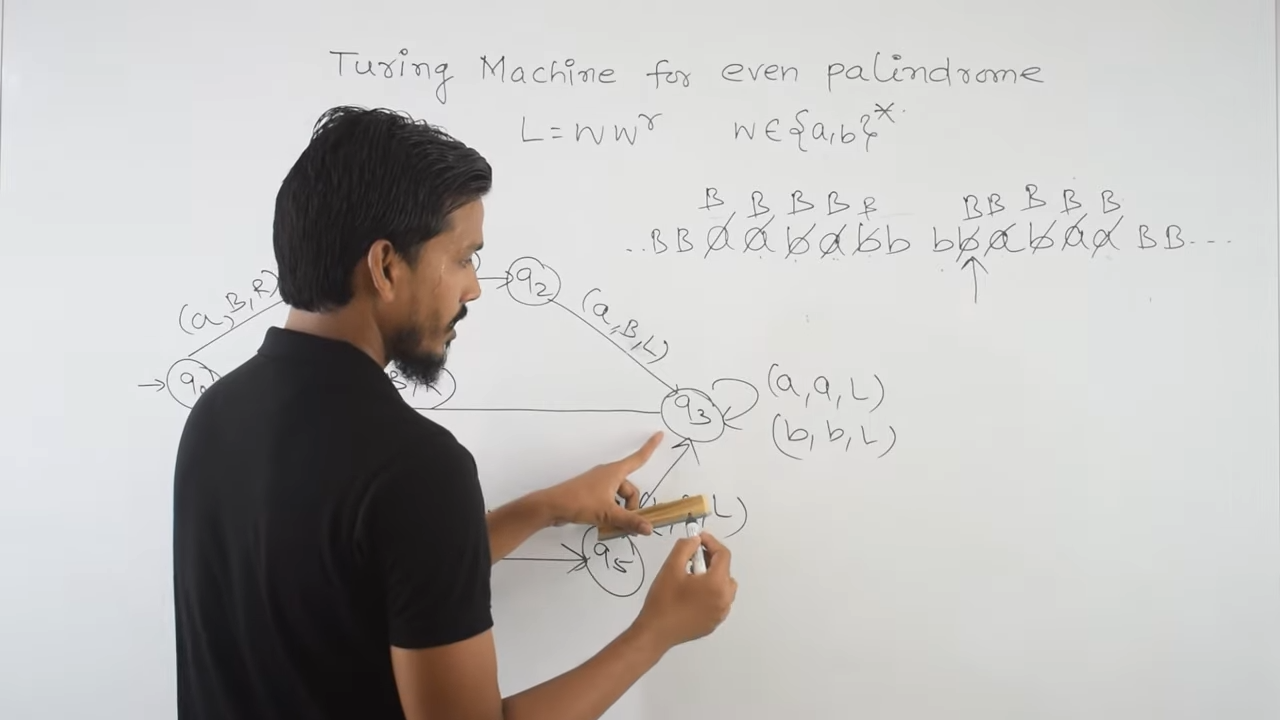 Turing Machine for even palindrome
L = W W^r   W ∈ {a,b}^*
B B B B B B B B B B
..BB a a b a b b b b a b a a BB---
(a, B, R)
q2
(a, B, L)
q3
(a, a, L)
(b, b, L)
L)
q5